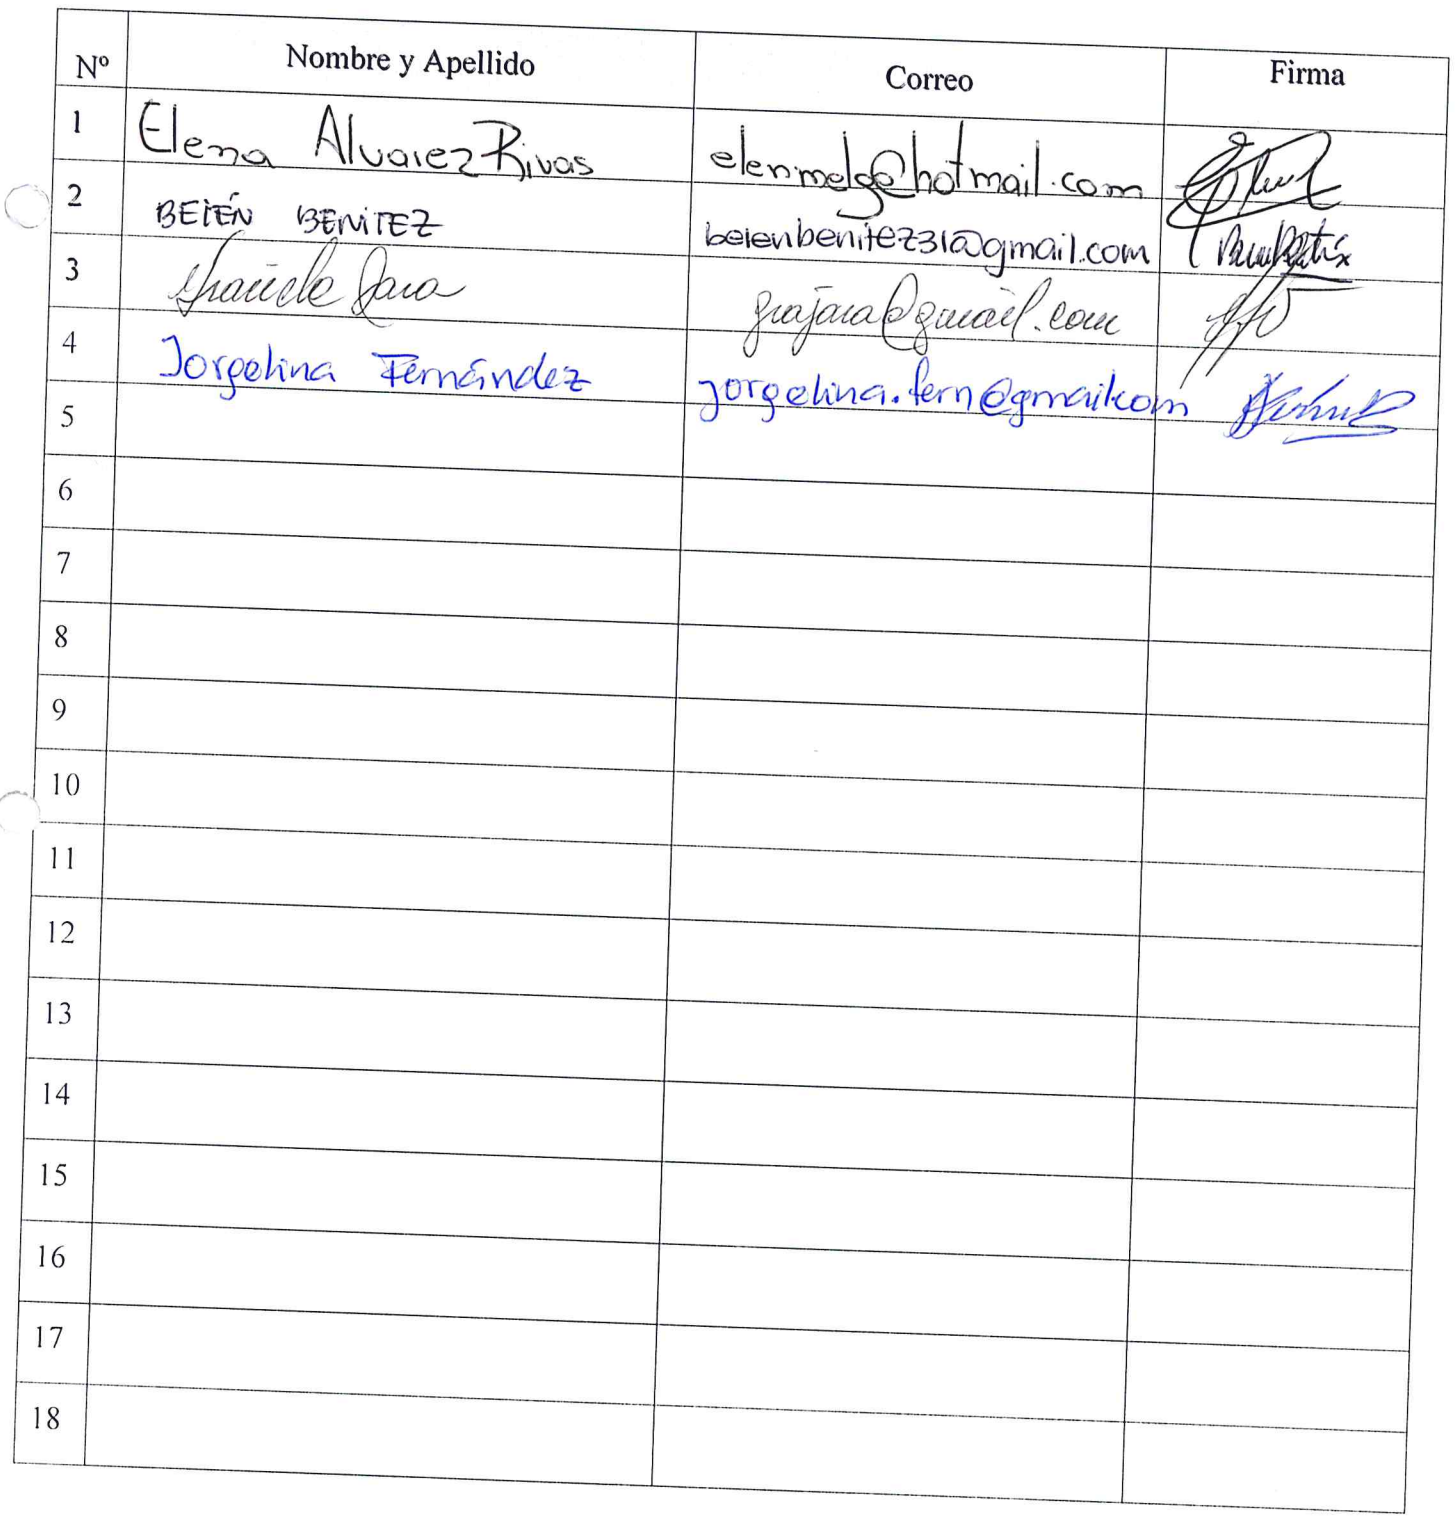 Nº Nombre y Apellido Correo Firma
1 Elena Alvarez Rivas elenmelg@hotmail.com
2 BELÉN BENITEZ belenbenitez31@gmail.com
3 Graciela Jara grajara@gmail.com
4 Jorgelina Fernández jorgelina.fern@gmail.com
5
6
7
8
9
10
11
12
13
14
15
16
17
18